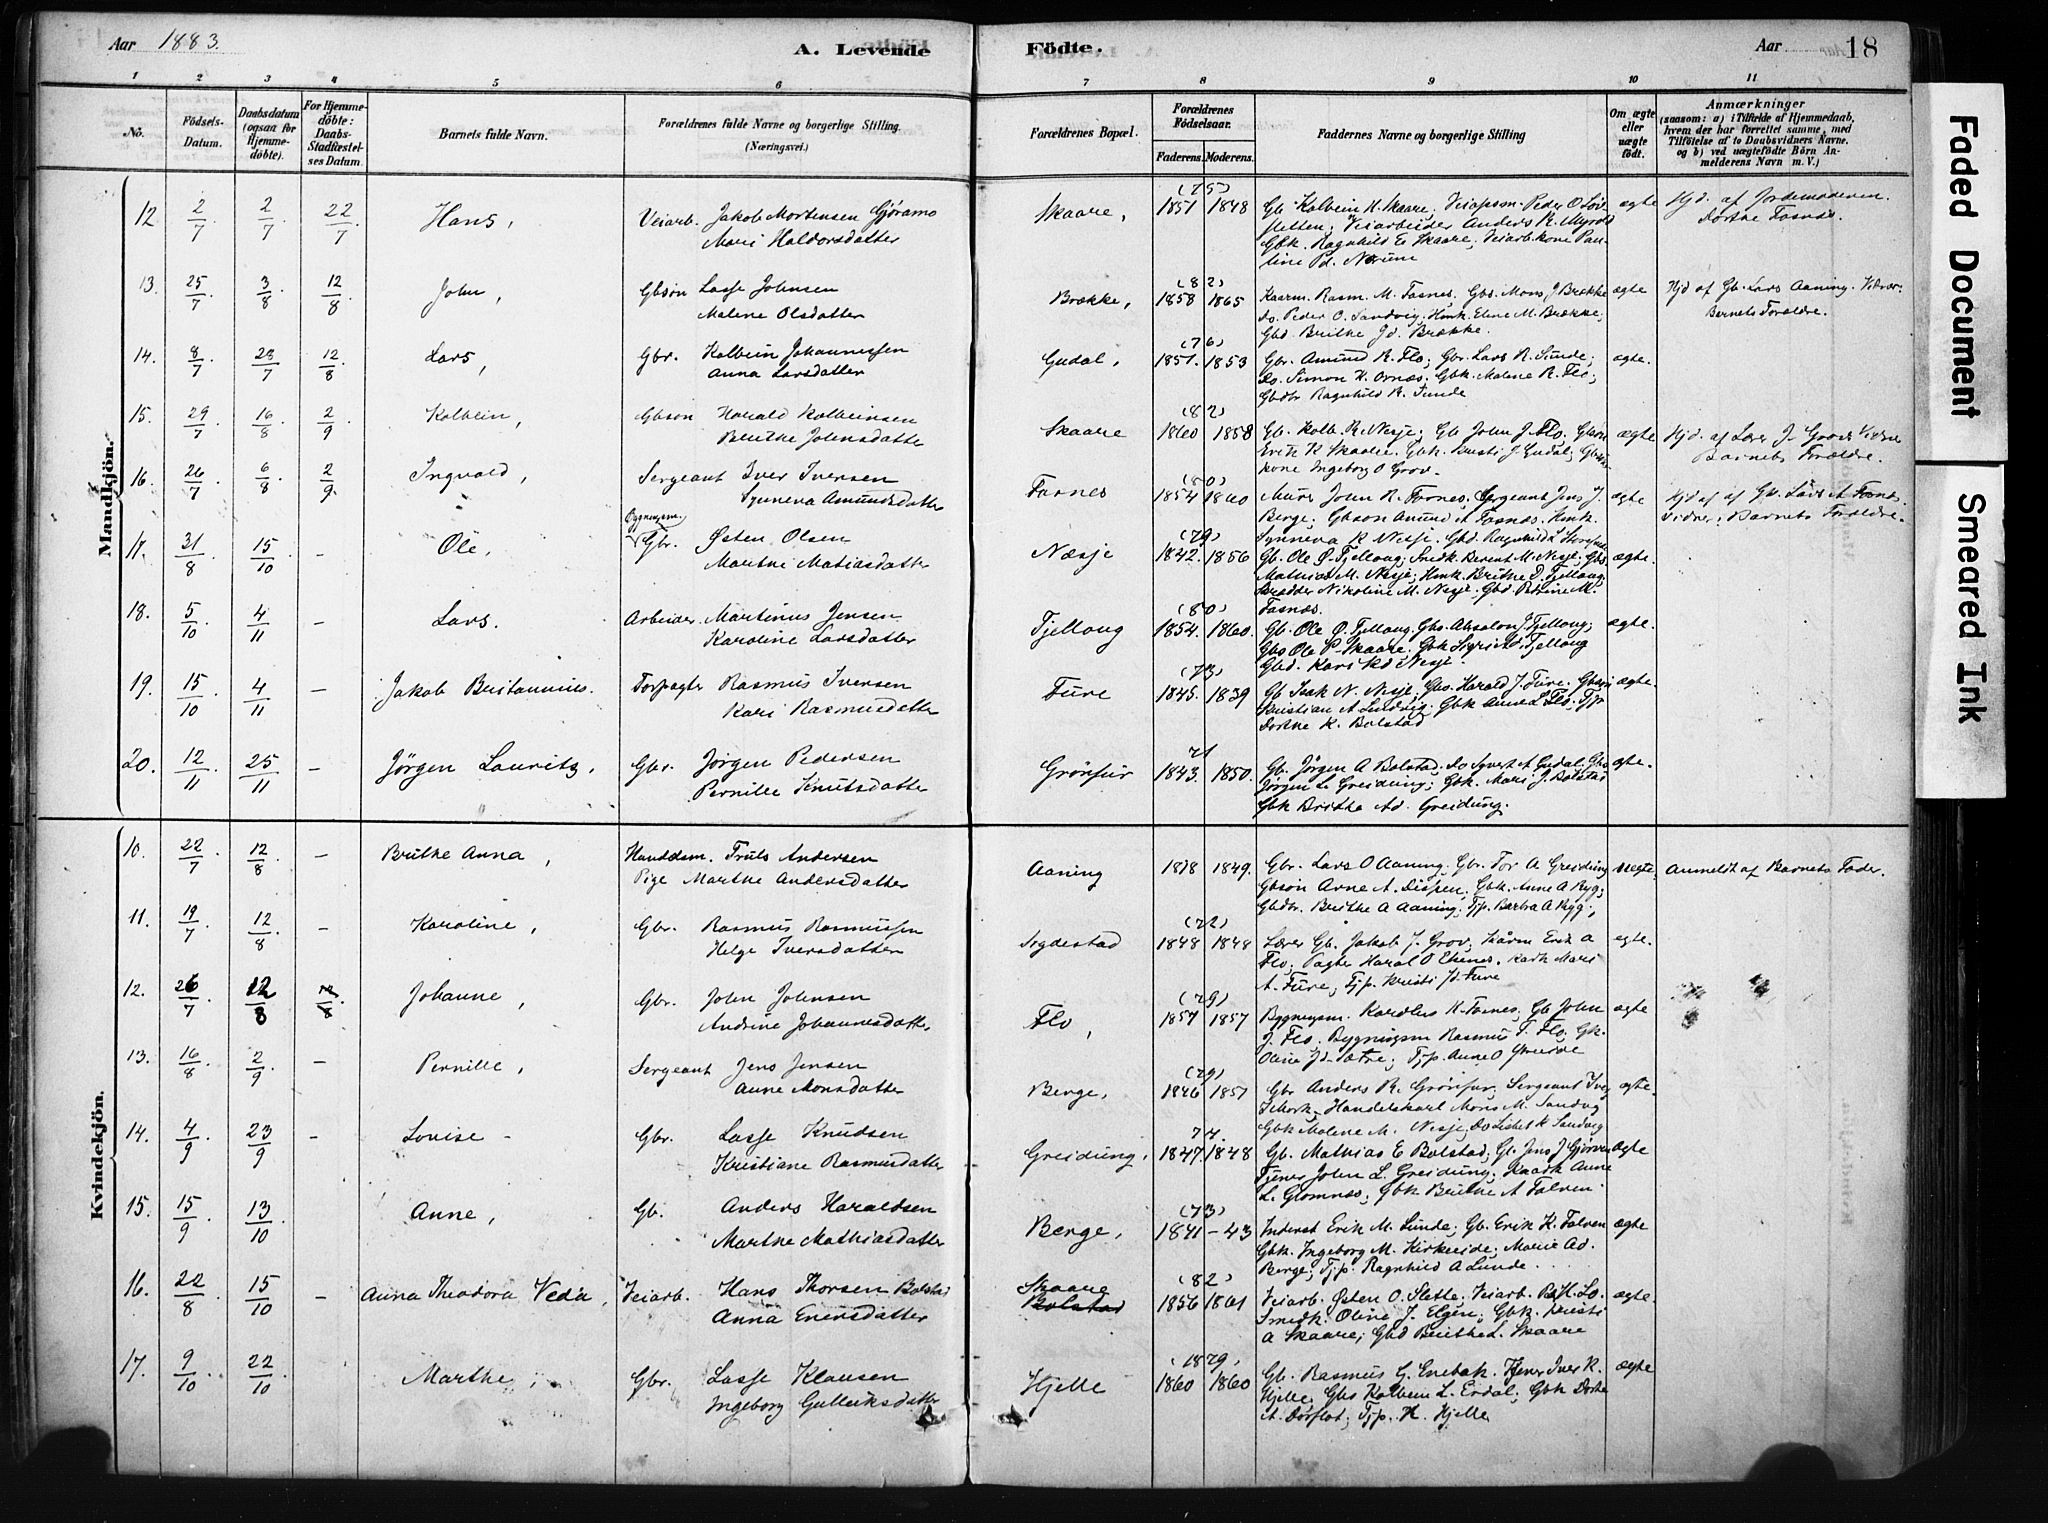 Aar 1883.
A. Levende Födte.
Aar 18
1 2 3 4 5 6 7 8 9 10 11
No.
Födsels-Datum.
Daabsdatum (ogsaa for Hjemmedöbte).
For Hjemmedöbte: Daabs-Stadfæstelses Datum.
Barnets fulde Navn.
Forældrenes fulde Navne og borgerlige Stilling. (Næringsvei.)
Forældrenes Bopæl.
Forældrenes Födselsaar.
Faderens. Moderens.
Faddernes Navne og borgerlige Stilling
Om ægte eller uægte födt.
Anmærkninger
(saasom: a) i Tilfælde af Hjemmedaab, hvem der har forrettet samme, med Tilföielse af to Daabsvidners Navne. og b) ved uægtefödte Börn Anmelderens Navn m. V.)
Mandkjön.
12 2/7 2/7 22/7 Hans, Veiarb. Jakob Mortensen Gjøramo
Mari Haldorsdatter
Skaare, (75) 1851 1848 Gb. Kolbein K. Skaare, Veiopsm. Peder O
Veiarbeider Anders K.
Gbk. Ragnhild E Skaare, Veiarb.kone Pauline Pd.
ægte Hjd. af Jordemoderen Dorthe Fosnes.
13. 25/7 3/8 12/8 John, Gbsøn Lasse Johnsen
Malene Olsdatter
Brække, (82) 1858 1865 Kaarm. Rasm. M. Fosnes, Gbs. Mons J Brække
do. Peder O. Sandvig, Hmk. Eline M. Brække,
Gbd Brithe Jd. Brække.
ægte Hjd af Gb. Lars Aaning. Vidner Barnets Forældre.
14. 8/7 28/7 12/8 Lars, Gbr. Kolbein Johannessen
Anna Larsdatter
Gudal, (76) 1851. 1853 Gbr. Amund R. Flo; Gbr. Lars R. Sunde;
Do. Simon K. Ornæs; Gbk. Malene R. Flo;
Gbdtr Ragnhild R. Sunde
ægte.
15. 29/7 16/8 2/9 Kolbein, Gbsøn Harald Kolbeinsen
Brithe Johnsdatter
Skaare (82) 1860 1858 Gb. Kolb. R. Nesje; Gb John J. Flo;
Erik K Skaare; Gbk. J. Gudal;
kone Ingeborg O Grov.
ægte Hjd. af Lærer J. Grov Vidner Barnets Forældre.
16. 26/7 6/8 2/9 Ingvald, Sergeant Iver Iversen
Synneva Amundsdatter
Fosnes (80) 1854 1860 Murer John R. Fosnes, Sergeant Jens J.
Berge; Gbsøn Amund A Fosnæs. Hmk.
Synneva R Nesje. Gbd. Ragnhild
ægte Hjd af af Gb. Lars A Fosnes. Vidner: Barnets Forældre.
17. 31/8 15/10 – Ole, Bygningsm. Gbr. Østen Olsen
Marthe Matiasdatter
Næsje (79) 1842. 1856 Gb. Ole Ø. Tjellaug, Snedk. Berent M. Nesje, Gbs.
Mathias M. Nesje, Hmk. Brithe D. Tjellaug,
Nikoline M. Nesje, Gbd. M.
Fosnæs.
ægte.
18. 5/10 4/11 – Lars. Arbeider. Martinus Jensen
Karoline Larsdatter
Tjellaug (80) 1854. 1860. Gb. Ole Ø. Tjellaug, Gbs. Absalon J Tjellaug;
Gbs Ole P. Skaare, Gbk Sigri Ad. Tjellaug
Gbd. Kari Rd Nesje.
ægte.
19. 15/10 4/11 – Jakob Bertannius. Forpagter Rasmus Iversen
Kari Rasmusdatter
Fure (73) 1845. 1839 Gb Isak N. Nesje, Gbs. Harald J. Fure, Gbsøn
Kristian A Sandvig. Gbk Anne L Flo, Tjp
Dorthe K. Bolstad
ægte.
20. 12/11 25/11 – Jörgen Lauritz. Gbr. Jørgen Pedersen
Pernille Knutsdatter
Grönfur 71 1843. 1850. Gb. Jörgen A Bolstad. Do Syvert A Gudal, Gbs
Jörgen L Greidung; Gbk. Mari J. Bolstad
Gbk Brithe Ad. Greidung.
ægte.
Kvindekjön.
10. 22/7 12/8 – Brithe Anna, Handelsm. Truls Andersen
Pige Marthe Andersdatter
Aaning 1818 1849. Gbr. Lars O Aaning; Gbr. Tor A Greidung
Gbsøn Arne A. Dispen; Gbk. Anne A Ryg;
Gbdtr. Brithe A Aaning; Tjp. Barbra A Ryg;
uægte. Anmeldt af Barnets Fader.
11. 19/7 12/8 – Karoline, Gbr. Rasmus Rasmussen
Helge Iversdatter
Sogdestad (72) 1848 1848 Lærer Gb. Jakob J. Grov, Kårm Erik A
Flo; Pagter Haral O Ekenes. Kadk Mari
A. Fure; Tjp. Kristi Jd. Fure
ægte.
12. 26/7 12/8 12/8. Johanne, Gbr. John Johnsen
Andrine Johannesdatter
Flo, (79) 1857 1857 Bygningsm. K. Fosnes, Gb John
J. Flo, Bygningsm Rasmus T. Flo, Gk.
Oline Jd. Sætre; Tjp. Anne O Greidde
ægte
13. 16/8 2/9 – Pernille, Sergeant Jens Jensen
Anne Monsdatter
Berge, (79) 1846 1851 Gbr Anders R. Grönfur; Sergeant Iver
Handelskarl Mons M. Sandvig
Gbk Malene M. Nesje, Do Lisbet K Sandvig
ægte.
14. 4/9 23/9 – Lovise – Gbr. Lasse Knudsen
Kristiane Rasmusdatter
Greidung, 74. 1847. 1848 Gb. Mathias E Bolstad; Gb. Jens J Gjörven
Tjener John L. Greidung, Kaadk Anne
L. Glomnes; Gbk Brithe A Folven.
ægte
15. 15/9 13/10 Anne, Gb. Anders Haraldsen
Marthe Mathiasdatter
Berge, (73) 1841 – 43 Inderst Erik M. Sunde; Gb. Erik K. Folven
Gbk. Ingeborg M. Kirkeide; Marie Ad.
Berge; Tjp. Ragnhild A Sunde.
ægte
16. 22/8 15/10 – Anna Theodora Veda, Veiarb. Hans Thorsen Bolstad
Anna Enersdatter
Skaare Bolstad (82) 1856 1861 Veiarb. Østen O. Slette. Veiarb. Lo.
Smedk. Oline J. Elgen; Gbk. Kristi
A Skaare; Gbd Brithe L. Skaare
ægte.
17. 9/10 22/10 Marthe, Gbr. Lasse Klausen
Ingeborg Gulleiksdatter
Hjelle (1879) 1860 1860 Gb. Rasmus G. Enebak. Tjener Iver R.
Hjelle; Gbs Kolbein L. Erdal; Gbk Dorthe
A. Dørflot; Tjp. K. Hjelle
ægte
Faded Document
Smeared Ink